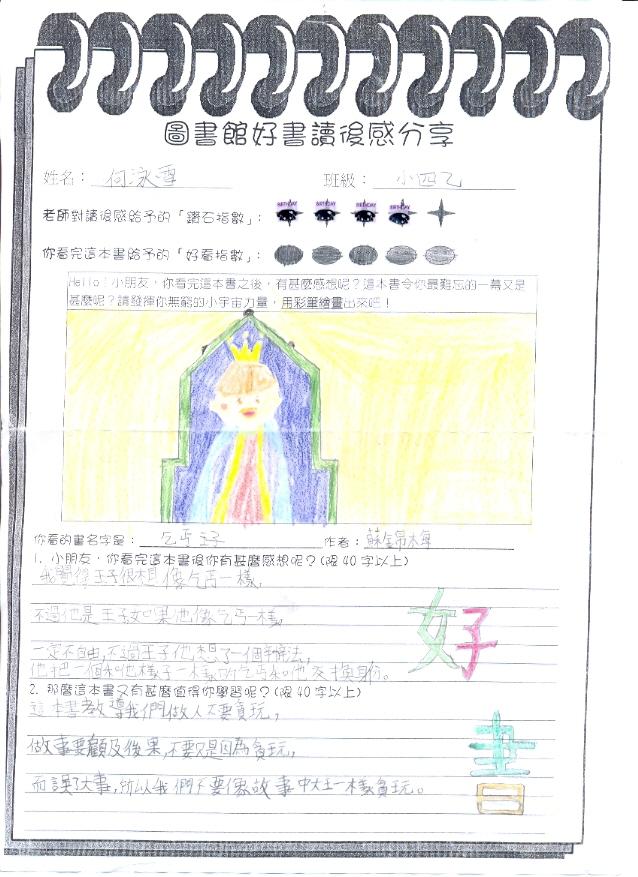 圖書館好書讀後感分享
姓名： 何泳雪 班級： 小四乙
老師對讀後感給予的「鑽石指數」： BIRTHDAY BIRTHDAY BIRTHDAY BIRTHDAY
你看完這本書給予的「好看指數」：
Hello！小朋友，你看完這本書之後，有甚麼感想呢？這本書令你最難忘的一幕又是
甚麼呢？請發揮你無窮的小宇宙力量，用彩筆繪畫出來吧！
你看的書名字是： 乞丐王子 作者： 蘇金
1. 小朋友，你看完這本書後你有甚麼感想呢？(限 40 字以上)
我覺得王子很想像乞丐一樣，
不過他是王子如果他像乞丐一樣，
一定不自由，不過王子他想了一個辦法，
他把一個和他樣子一樣的乞丐和他交換身份。
好
2. 那麼這本書又有甚麼值得你學習呢？(限 40 字以上)
這本書教導我們做人不要貪玩，
做事要顧及後果，不要只是因為貪玩，
而誤了大事，所以我們不要像故事中一樣貪玩。
書